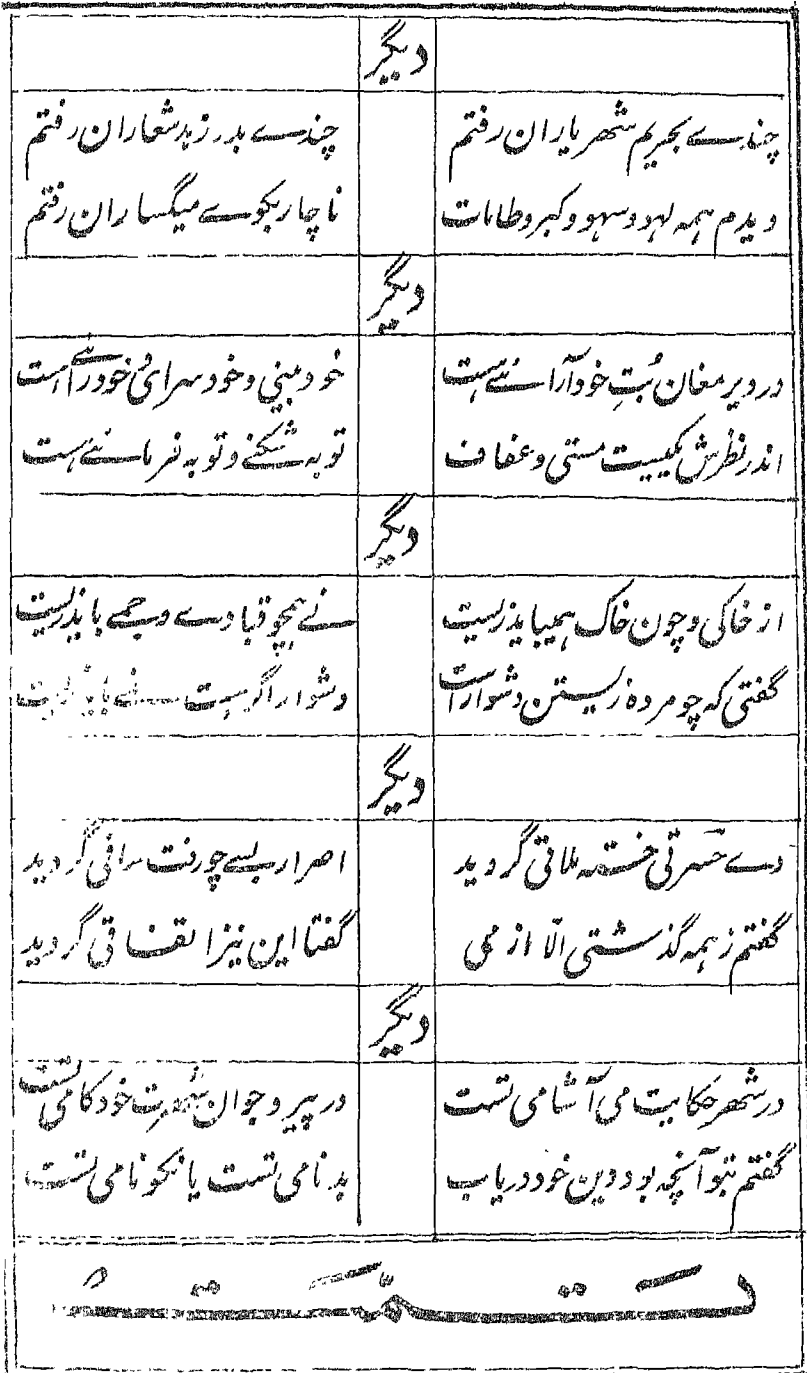 دیگر
چندے بحریم شهر یاران رفتم چندے بدر زهد شعاران رفتم
دیدم همه لهو و سهو و کبر و طامات ناچار بکوے میگساران رفتم
دیگر
در دیر مغان بُتِ خودآرائے هست خود بینی و خود سرای و خودرائے هست
اندر نظرش یکیست مستی و عفاف توبه شکنے و توبه فرمائے هست
دیگر
از خاکی و چون خاک همیباید زیست نے همچو قباد وے و جمے باید زیست
گفتی که چو مرده زیستن دشوارست دشوار اگر هست باید زیست
دیگر
دے حسرتی خسته ملاقی گردید اصرار بسے چو رفت گردید
گفتم ز همه گذشتی الّا از می گفتا این نیز اتفاقی گردید
دیگر
در شهر حکایت می آشامی تست در پیر و جوان شهرت خودکامی تست
گفتم بتو آنچه بود دین خود دریاب بدنامی تست یا نکونامی تست
تمّت